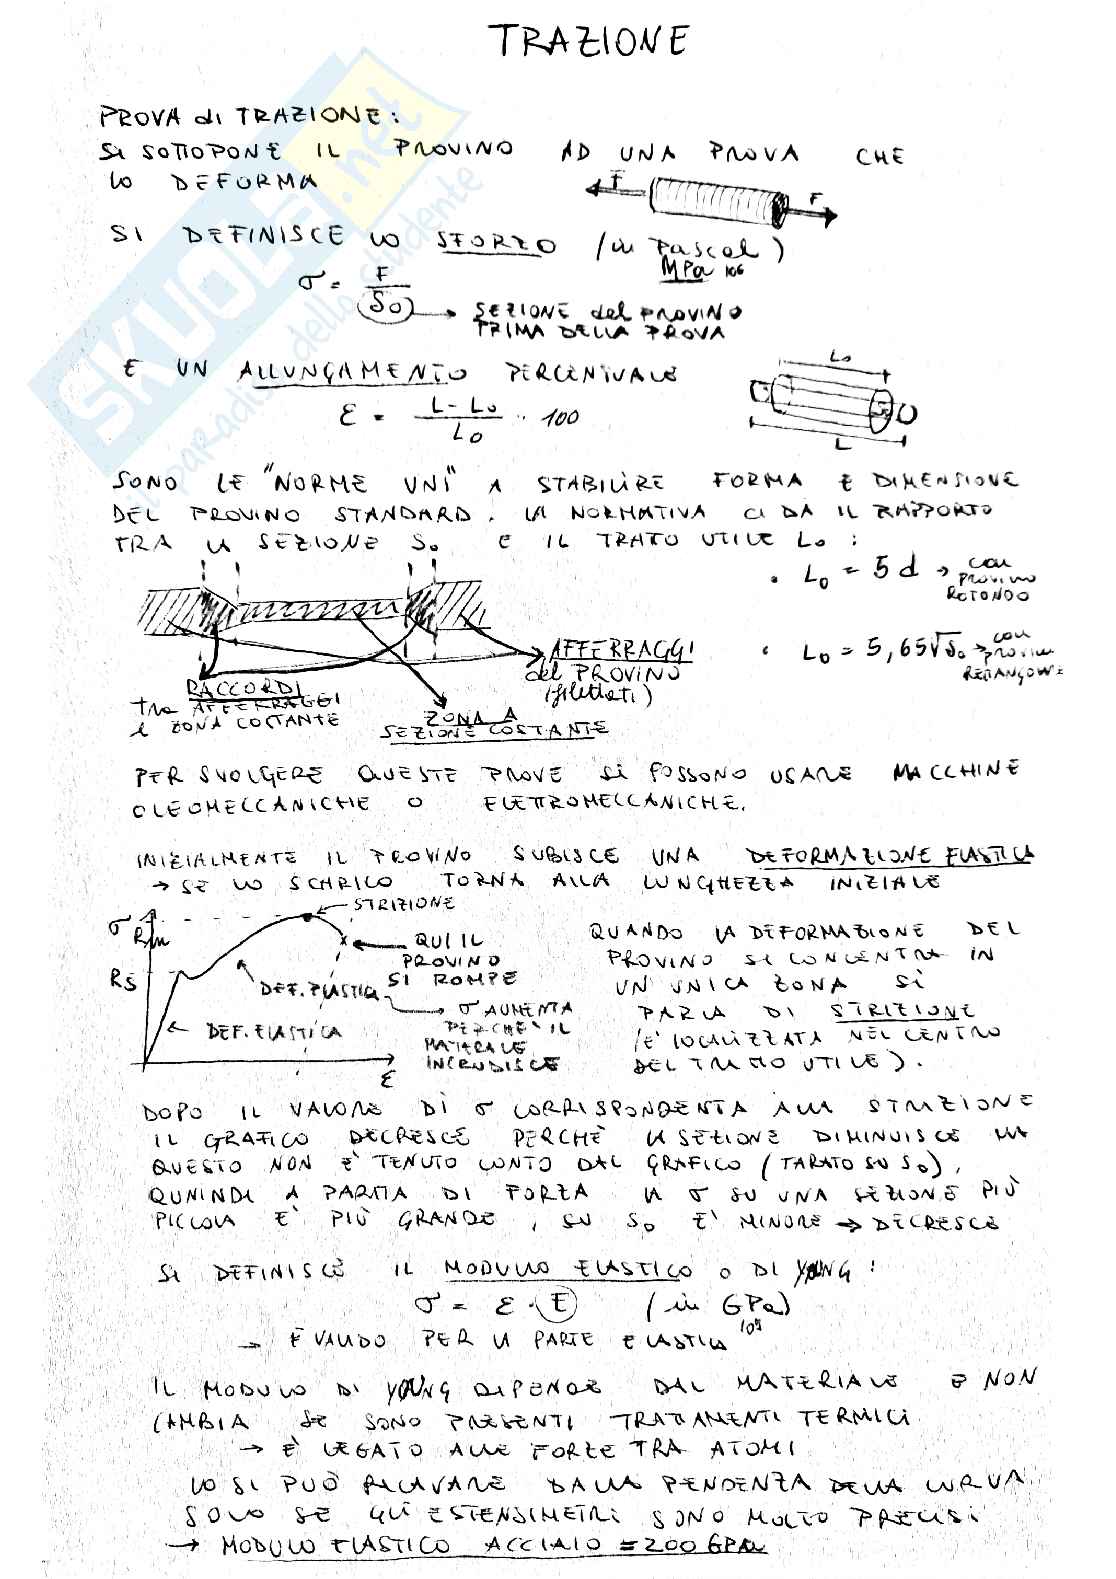 TRAZIONE
PROVA di TRAZIONE:
SI SOTTOPONE IL PROVINO AD UNA PROVA CHE
LO DEFORMA
F
F
SI DEFINISCE LO SFORZO (in Pascal)
MPa 10⁶
σ = F / S₀ → SEZIONE del PROVINO
PRIMA DELLA PROVA
E UN ALLUNGAMENTO PERCENTUALE
ε = L - L₀ / L₀ · 100
L₀
L
SONO LE "NORME UNI" A STABILIRE FORMA E DIMENSIONE
DEL PROVINO STANDARD. LA NORMATIVA CI DÀ IL RAPPORTO
TRA LA SEZIONE S₀ E IL TRATO UTILE L₀ :
• L₀ = 5 d → con
PROVINO
ROTONDO
• L₀ = 5,65√S₀ → con
PROVINI
RETANGOL
AFFERRAGGI
del PROVINO
(filettati)
RACCORDI
tra AFFERRAGGI
e ZONA COSTANTE
ZONA A
SEZIONE COSTANTE
PER SVOLGERE QUESTE PROVE SI POSSONO USARE MACCHINE
OLEOMECCANICHE O ELETTROMECCANICHE.
INIZIALMENTE IL PROVINO SUBISCE UNA DEFORMAZIONE ELASTICA
→ SE LO SCARICO TORNA ALLA LUNGHEZZA INIZIALE
σ
Rm
RS
ε
STRIZIONE
QUI IL
PROVINO
SI ROMPE
DEF. PLASTICA
σ AUMENTA
PERCHE' IL
MATERIALE
INCRUDISCE
DEF. ELASTICA
QUANDO LA DEFORMAZIONE DEL
PROVINO SI CONCENTRA IN
UN UNICA ZONA SI
PARLA DI STRIZIONE
(E' LOCALIZZATA NEL CENTRO
DEL TRATTO UTILE).
DOPO IL VALORE DI σ CORRISPONDENTA ALLA STRIZIONE
IL GRAFICO DECRESCE PERCHÈ LA SEZIONE DIMINUISCE MA
QUESTO NON E' TENUTO CONTO DAL GRAFICO (TARATO SU S₀),
QUNINDI A PARITA DI FORZA LA σ SU UNA SEZIONE PIÙ
PICCOLA E' PIÙ GRANDE, SU S₀ E' MINORE → DECRESCE
SI DEFINISCE IL MODULO ELASTICO O DI YOUNG:
σ = ε · E (in GPa)
10⁹
→ È VALIDO PER LA PARTE ELASTICA
IL MODULO DI YOUNG DIPENDE DAL MATERIALE E NON
CAMBIA SE SONO PRESENTI TRATTAMENTI TERMICI
→ È LEGATO ALLE FORZE TRA ATOMI
LO SI PUÒ RICAVARE DALLA PENDENZA DELLA CURVA
SOLO SE GLI ESTENSIMETRI SONO MOLTO PRECISI
→ MODULO ELASTICO ACCIAIO = 200 GPa
SKUOLA.net
il paradiso dello studente